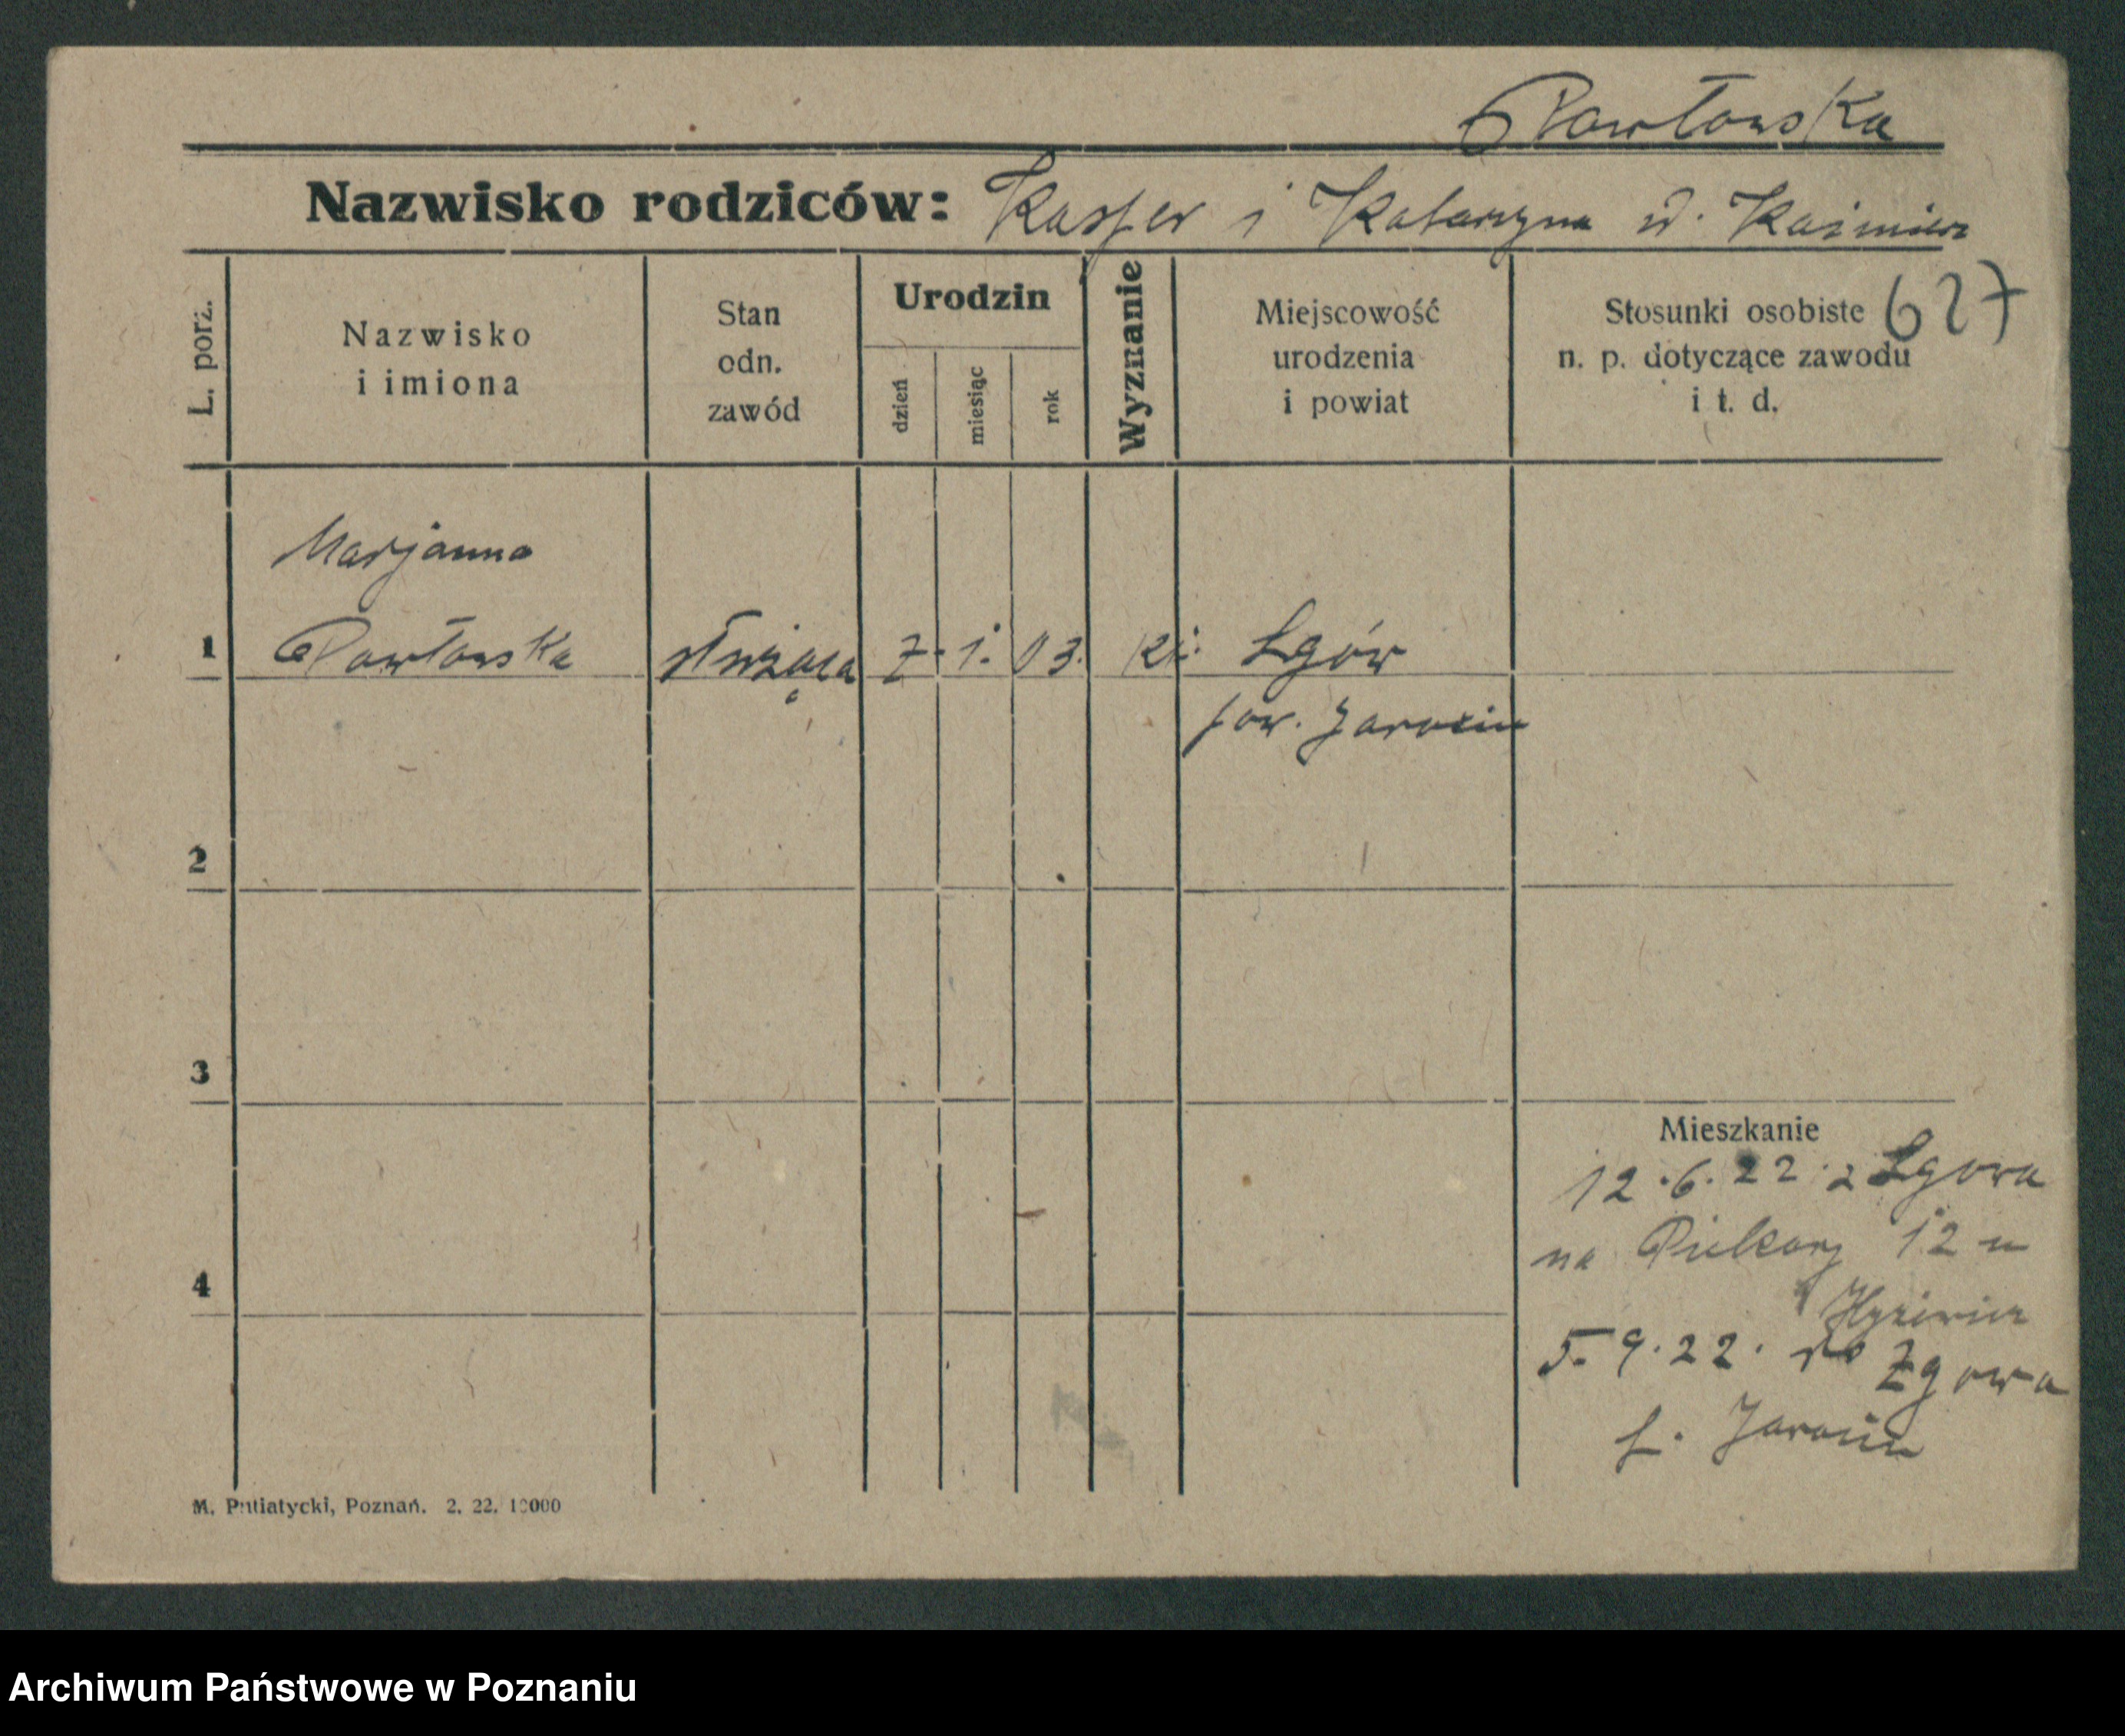 Pawłowska
Nazwisko rodziców: Kasper i Katarzyna d. Kaźmierz
627
L. porz.
Nazwisko
i imiona
Stan
odn.
zawód
Urodzin
dzień
miesiąc
rok
Wyznanie
Miejscowość
urodzenia
i powiat
Stosunki osobiste
n. p. dotyczące zawodu
i t. d.
Marjanna
1 Pawłowska służąca 7. 1. 03. kż. Lgów
pow. Jarocin
2
3
Mieszkanie
12.6.22. z Lgowa
na Piekary 12 u
4
5.9.22. do Lgowa
p. Jarocin
M. Putiatycki, Poznań. 2. 22. 10000
Archiwum Państwowe w Poznaniu